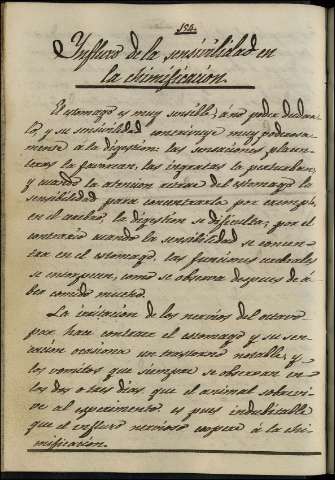 154.
Influxo de la sensivilidad en
la chimificacion.
El estomago es muy sensible; á no poder dudar-
lo, y su sensivilidad contribuye muy poderosa-
mente á la digestion: las sensaciones placen-
teras la favorecen, las ingratas la perturban,
y cuando la atencion retira del estomago la
sensibilidad para concentrarla por exemplo,
en el cerebro, la digestion se dificulta; por el
contrario cuando la sensibilidad se concen-
tra en el estomago, las funciones cerebrales
se entorpecen, como se observa despues de á-
ber comido mucho.
La irritacion de los nervios del octavo
par hace contraer el estomago y su sec-
cion ocasiona un trastorno notable, y
los vomitos que siempre se observan en
los dos o tres dias que el animal sobrevi-
ve al esperimento. es pues indubitable
que el influxo nervioso coopera á la chi-
mificacion.